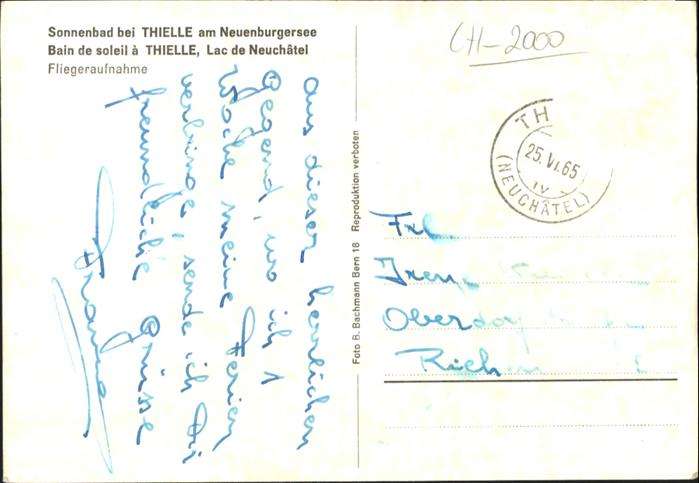 Sonnenbad bei THIELLE am Neuenburgersee
Bain de soleil à THIELLE, Lac de Neuchâtel
Fliegeraufnahme
CH-2000
aus dieser herrlichen
Gegend, wo ich 1
Woche meine Ferien
verbringe, sende ich Dir
freundliche Grüsse
Foto B. Bachmann Bern 18 Reproduktion verboten
TH
25.VI.65
(NEUCHÂTEL)
Frl.
Oberdorf